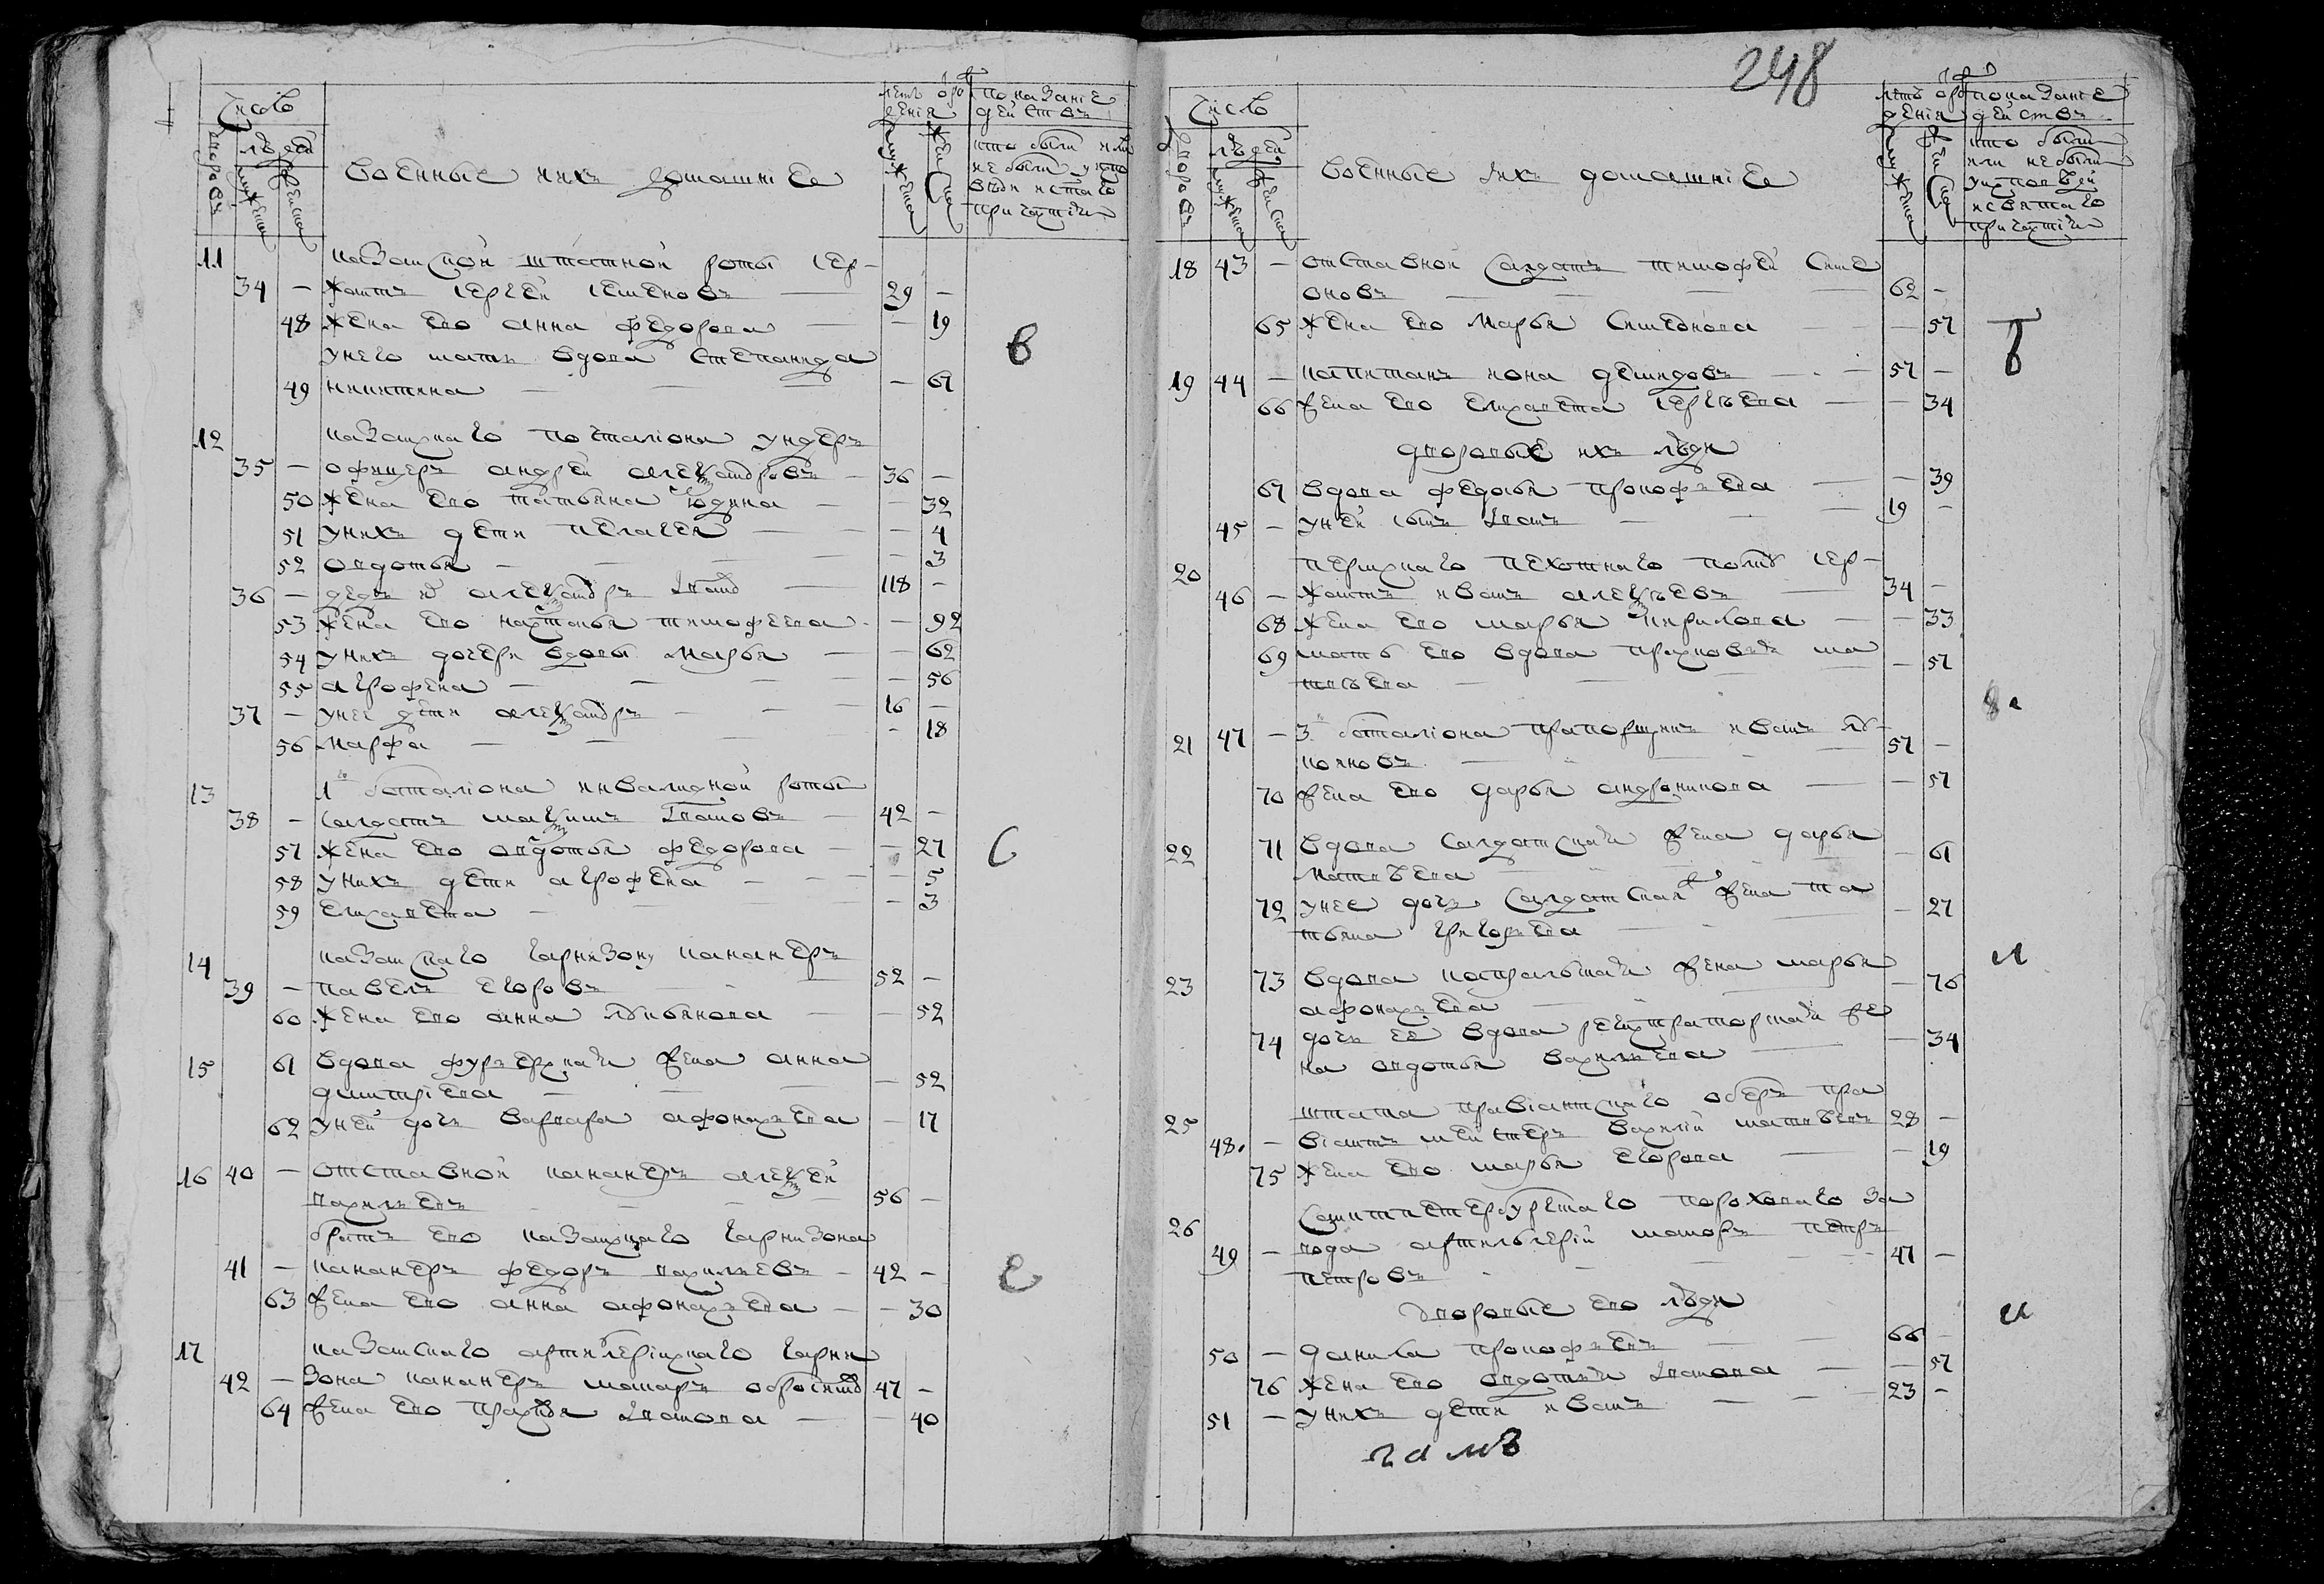 число
дворовъ
людей
мужеска
женска
военные и ихъ домашние
летъ от рож
дения
мужеска
женска
показание
действъ
кто были или
не были у испо
веди и святаго
причастия
11 казанской штатной роты сер-
34 — жантъ сергей семеновъ — 29 —
48 жена ево анна федорова — — 19
у него мать вдова степанида
49 никитина — — 61
в
12 казанскаго баталиона ундеръ
35 — офицеръ андрей александровъ — 36 —
50 жена ево татьяна — — 32
51 у нихъ дети пелагея — — 4
52 авдотья — — 3
36 — дедъ александръ — 118 —
53 жена ево настасья тимофеева — — 92
54 у нихъ дочери вдовы марья — — 62
55 агрофена — — 56
37 — у нее дети александръ — 16 —
56 марфа — — 18
13 1го баталиона инвалидной роты
38 — салдатъ максимъ ивановъ — 42 —
57 жена ево авдотья федорова — — 27
58 у нихъ дети агрофена — — 5
59 елизавета — — 3
с
14 казанскаго гарнизону канонеръ
39 — павелъ егоровъ — 52 —
60 жена ево анна лукьянова — — 52
15 61 вдова фурьерская жена анна
дмитриева — — 52
62 у ней дочь варвара афонасьева — 17
16 40 — отставной канонеръ алексей
васильевъ — 56 —
братъ ево казанскаго гарнизона
41 — канонеръ федоръ васильевъ — 42 —
63 жена ево анна афонасьева — — 30
е
17 казанскаго артилерискаго гарни
42 — зона канонеръ макаръ 47 —
64 жена ево иванова — — 40
248
число
дворовъ
людей
мужеска
женска
военные и ихъ домашние
летъ от рож
дения
мужеска
женска
показание
действъ
кто были
или не были
у исповеди
и святаго
причастия
18 43 — отставной салдатъ тимофей симе
оновъ — 62 —
65 жена ево марья симеонова — — 57
19 44 — капитанъ иона демидовъ — 57 —
66 жена ево елизавета сергеева — — 34
дворовые ихъ люди
67 вдова федосья прокофьева — — 39
45 — у ней сынъ иванъ — 19 —
20 пермскаго пехотнаго полку сер-
46 — жантъ иванъ алексеевъ — 34 —
68 жена ево марья кирилова — — 33
69 мать ево вдова ма
твеева — — 57
21 47 — 3го баталиона прапорщикъ иванъ лу
кояновъ — 57 —
70 жена ево дарья андроникова — — 57
22 71 вдова салдатская жена дарья
матвеева — — 61
72 у нее дочь салдатская жена та
тьяна григорьева — — 27
23 73 вдова капральская жена марья
афонасьева — — 76
74 дочь ее вдова регистраторская же
на авдотья васильева — — 34
л
25 штата правиантскаго оберъ пра
48 — виантъ мейстеръ василий матвеевъ 28 —
75 жена ево марья егорова — — 19
26 санктпетербургскаго пороховаго за
49 — вода артилерии маиоръ петръ
петровъ — 47 —
дворовые ево люди
50 — данила прокофьевъ — 66 —
76 жена ево авдотья иванова — — 57
51 — у нихъ дети иванъ — 23 —
и